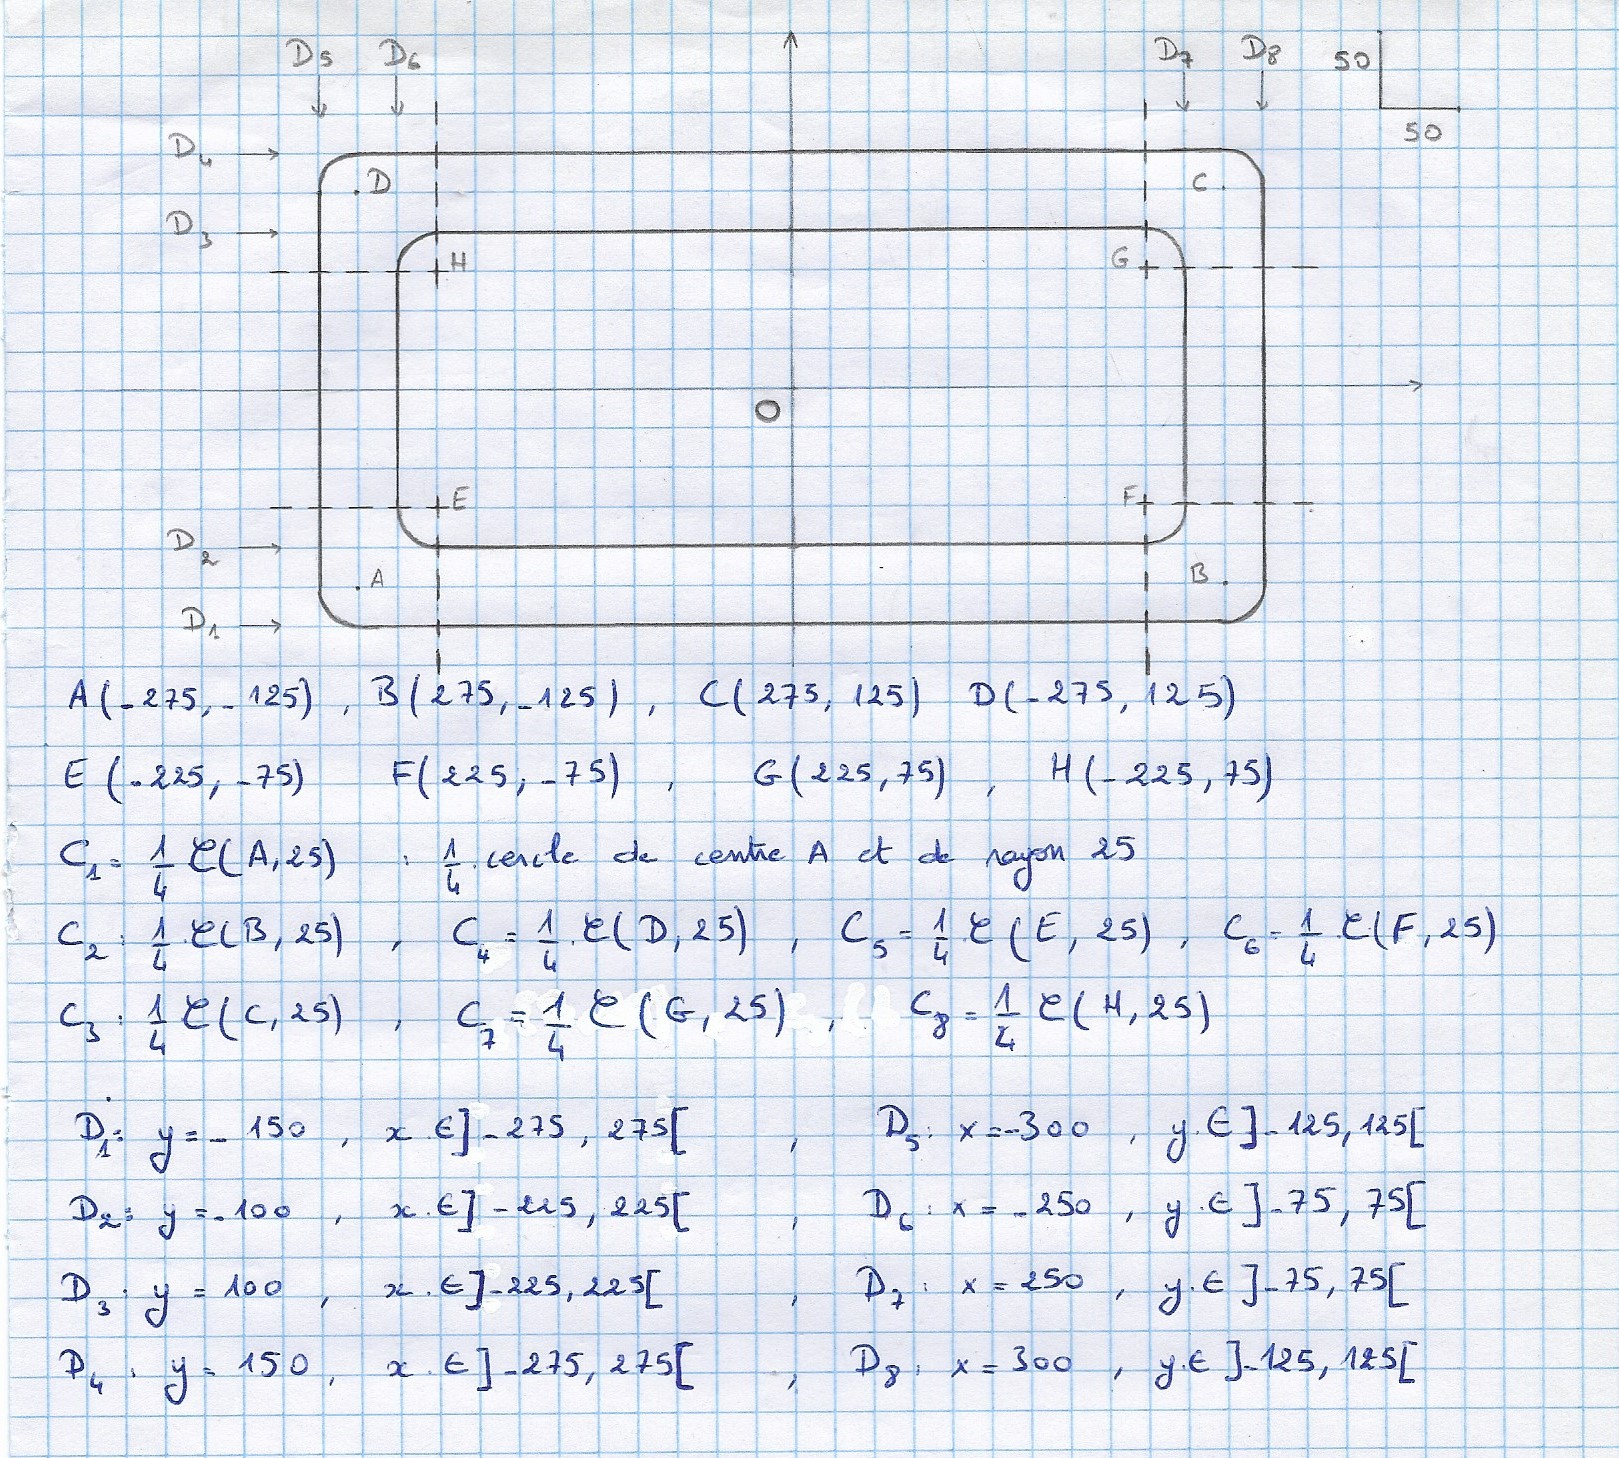 D5 D6 D7 D8 50
50
D4
D C
D3
H G
O
E F
D2
A B
D1
A(-275,-125) , B(275,-125) , C(275, 125) D(-275, 125)
E (-225, -75) F(225, -75) , G(225,75) , H(-225,75)
C1= 1/4 C(A,25) : 1/4 cercle de centre A et de rayon 25
C2: 1/4 C(B,25) , C4= 1/4 C(D,25) , C5= 1/4 C(E, 25) , C6= 1/4 C(F,25)
C3: 1/4 C(C,25) , C7= 1/4 C(G,25) , C8= 1/4 C(H,25)
D1: y=-150 , x ∈]-275, 275[ , D5: x=-300 , y ∈]-125,125[
D2: y=-100 , x ∈]-225, 225[ , D6: x=-250 , y ∈]-75, 75[
D3: y=100 , x ∈]-225,225[ , D7: x=250 , y ∈]-75, 75[
D4: y=150, x ∈]-275, 275[ , D8: x=300 , y∈]-125, 125[